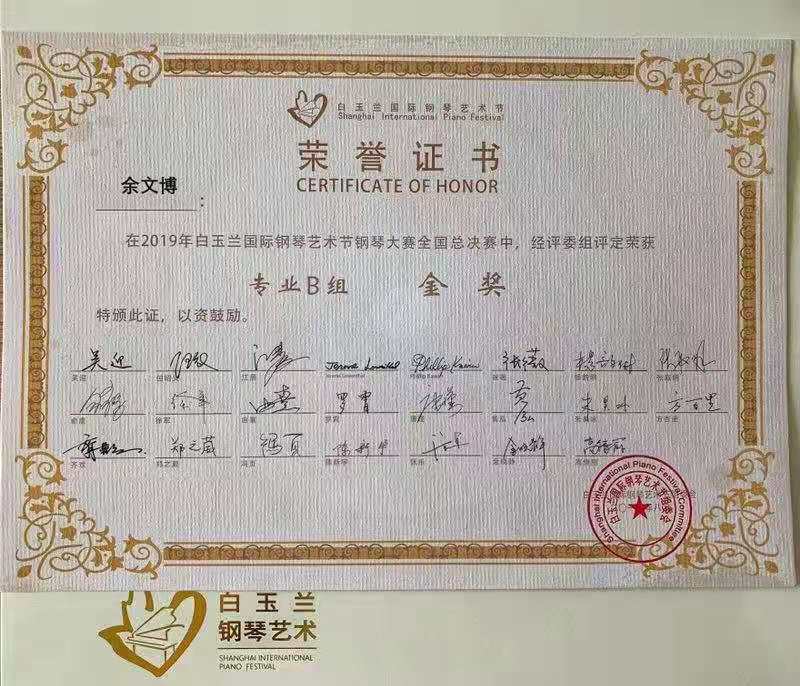 白玉兰国际钢琴艺术节
Shanghai International Piano Festival
荣誉证书
CERTIFICATE OF HONOR
余文博：
在2019年白玉兰国际钢琴艺术节钢琴大赛全国总决赛中，经评委组评定荣获
专业B组 金奖
特颁此证，以资鼓励。
吴迎
Jerome Lowenthal
罗霄
朱昊冰
方百里
齐欢 郑之葳 冯页 陈新宇
白玉兰国际钢琴艺术节组委会
Shanghai International Piano Festival Committee
白玉兰
钢琴艺术
SHANGHAI INTERNATIONAL
PIANO FESTIVAL